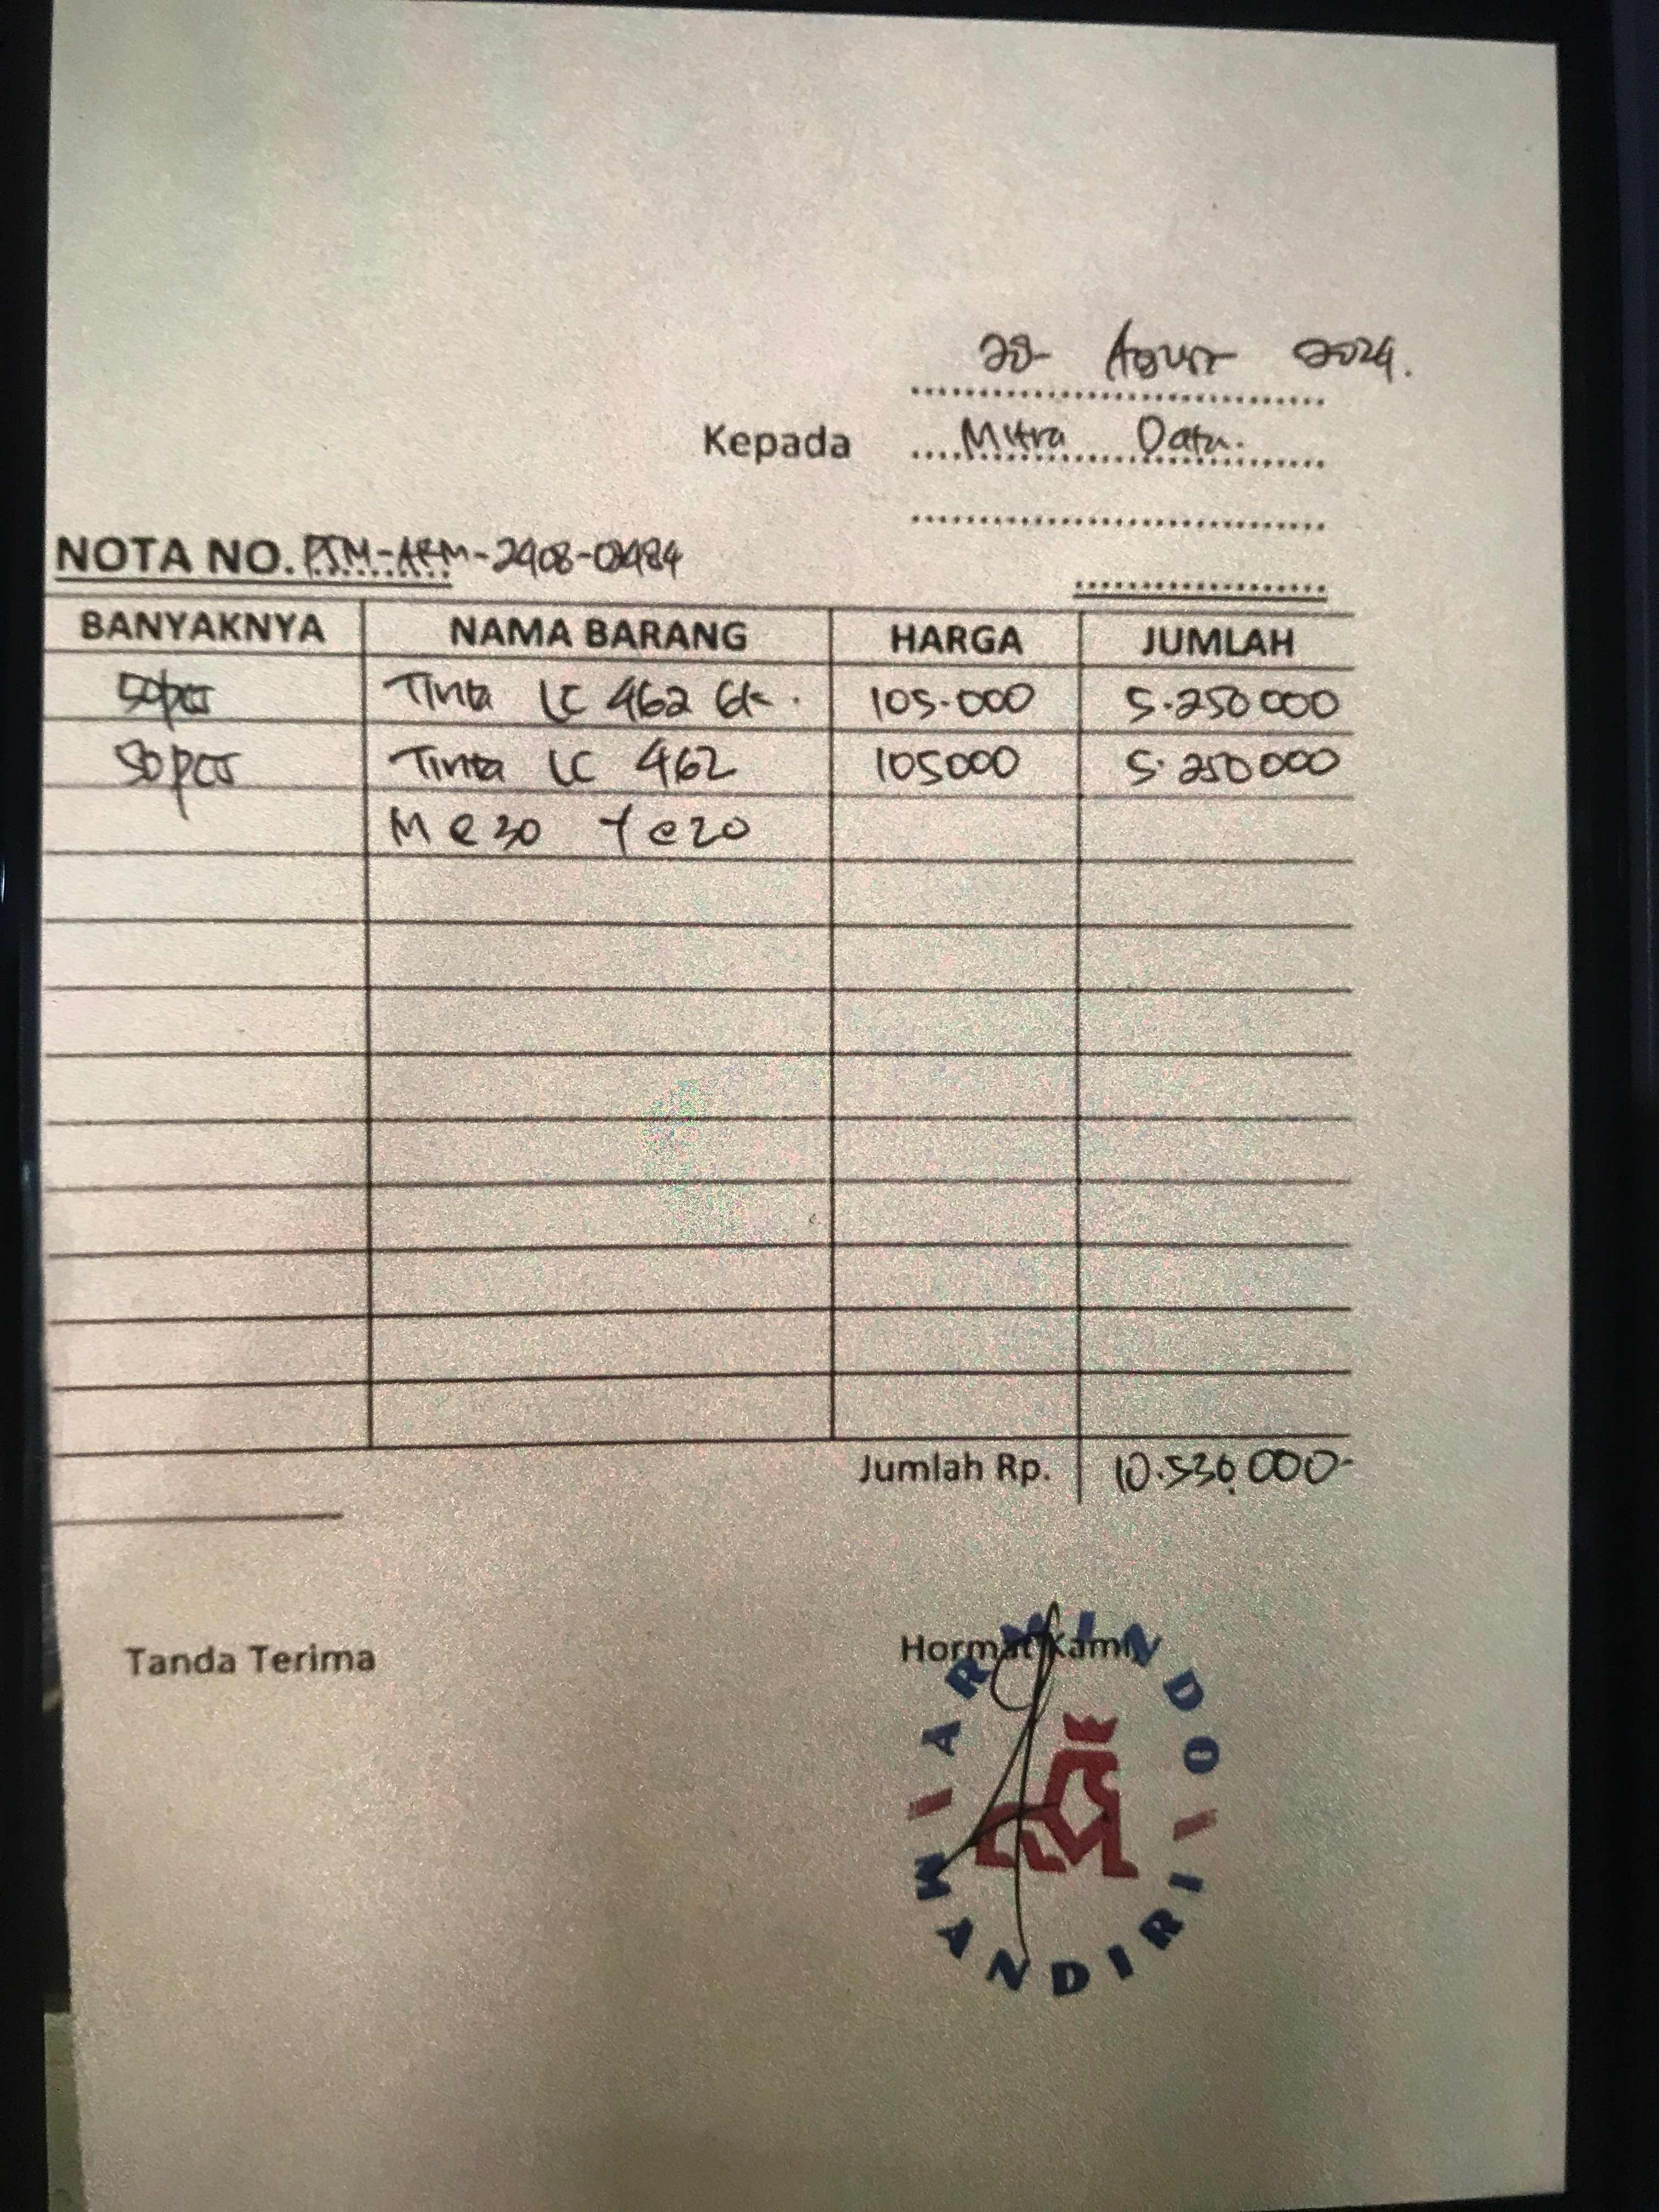 28 Agust 2024.
Kepada Mitra Data.
NOTA NO. PJM-ARM-2408-08484
BANYAKNYA NAMA BARANG HARGA JUMLAH
50pcs Tinta LC 462 BK. 105.000 5.250000
50pcs Tinta LC 462 105000 5.250000
M @30 Y @20
Jumlah Rp. 10.530.000-
Tanda Terima Hormat Kami,
ARMINDO
MANDIRI